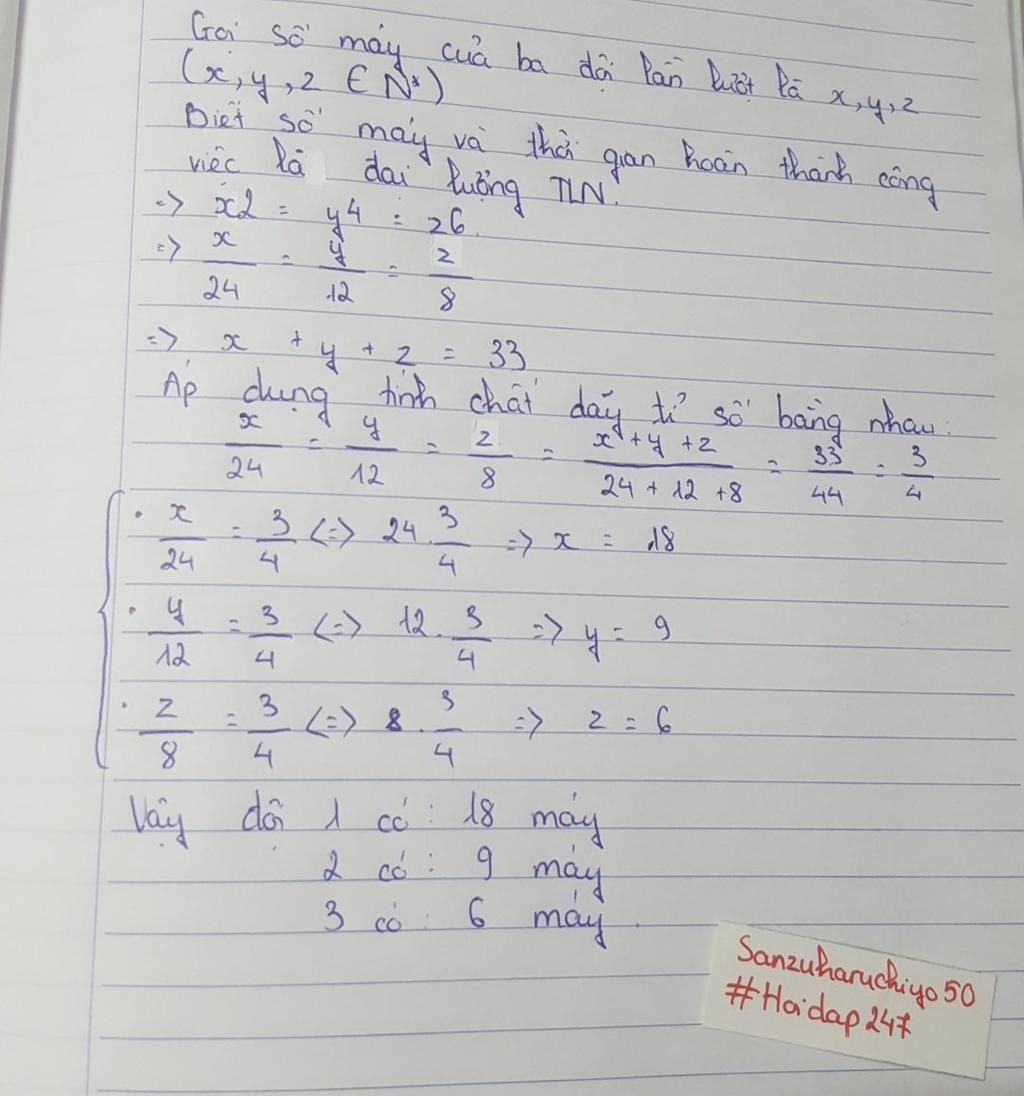 Gọi số máy của ba đội lần lượt là x, y, z
(x, y, z ∈ N*)
Biết số máy và thời gian hoàn thành công
việc là đại lượng TLN.
=> x2 = y4 = z6.
=> x/24 = y/12 = z/8
=> x + y + z = 33
Áp dụng tính chất dãy tỉ số bằng nhau:
x/24 = y/12 = z/8 = (x + y + z)/(24 + 12 + 8) = 33/44 = 3/4
• x/24 = 3/4 <=> 24 . 3/4 => x = 18
• y/12 = 3/4 <=> 12 . 3/4 => y = 9
• z/8 = 3/4 <=> 8 . 3/4 => z = 6
Vậy đội 1 có : 18 máy
2 có : 9 máy
3 có : 6 máy.
Sanzuharuchiyo50
#Hoidap247